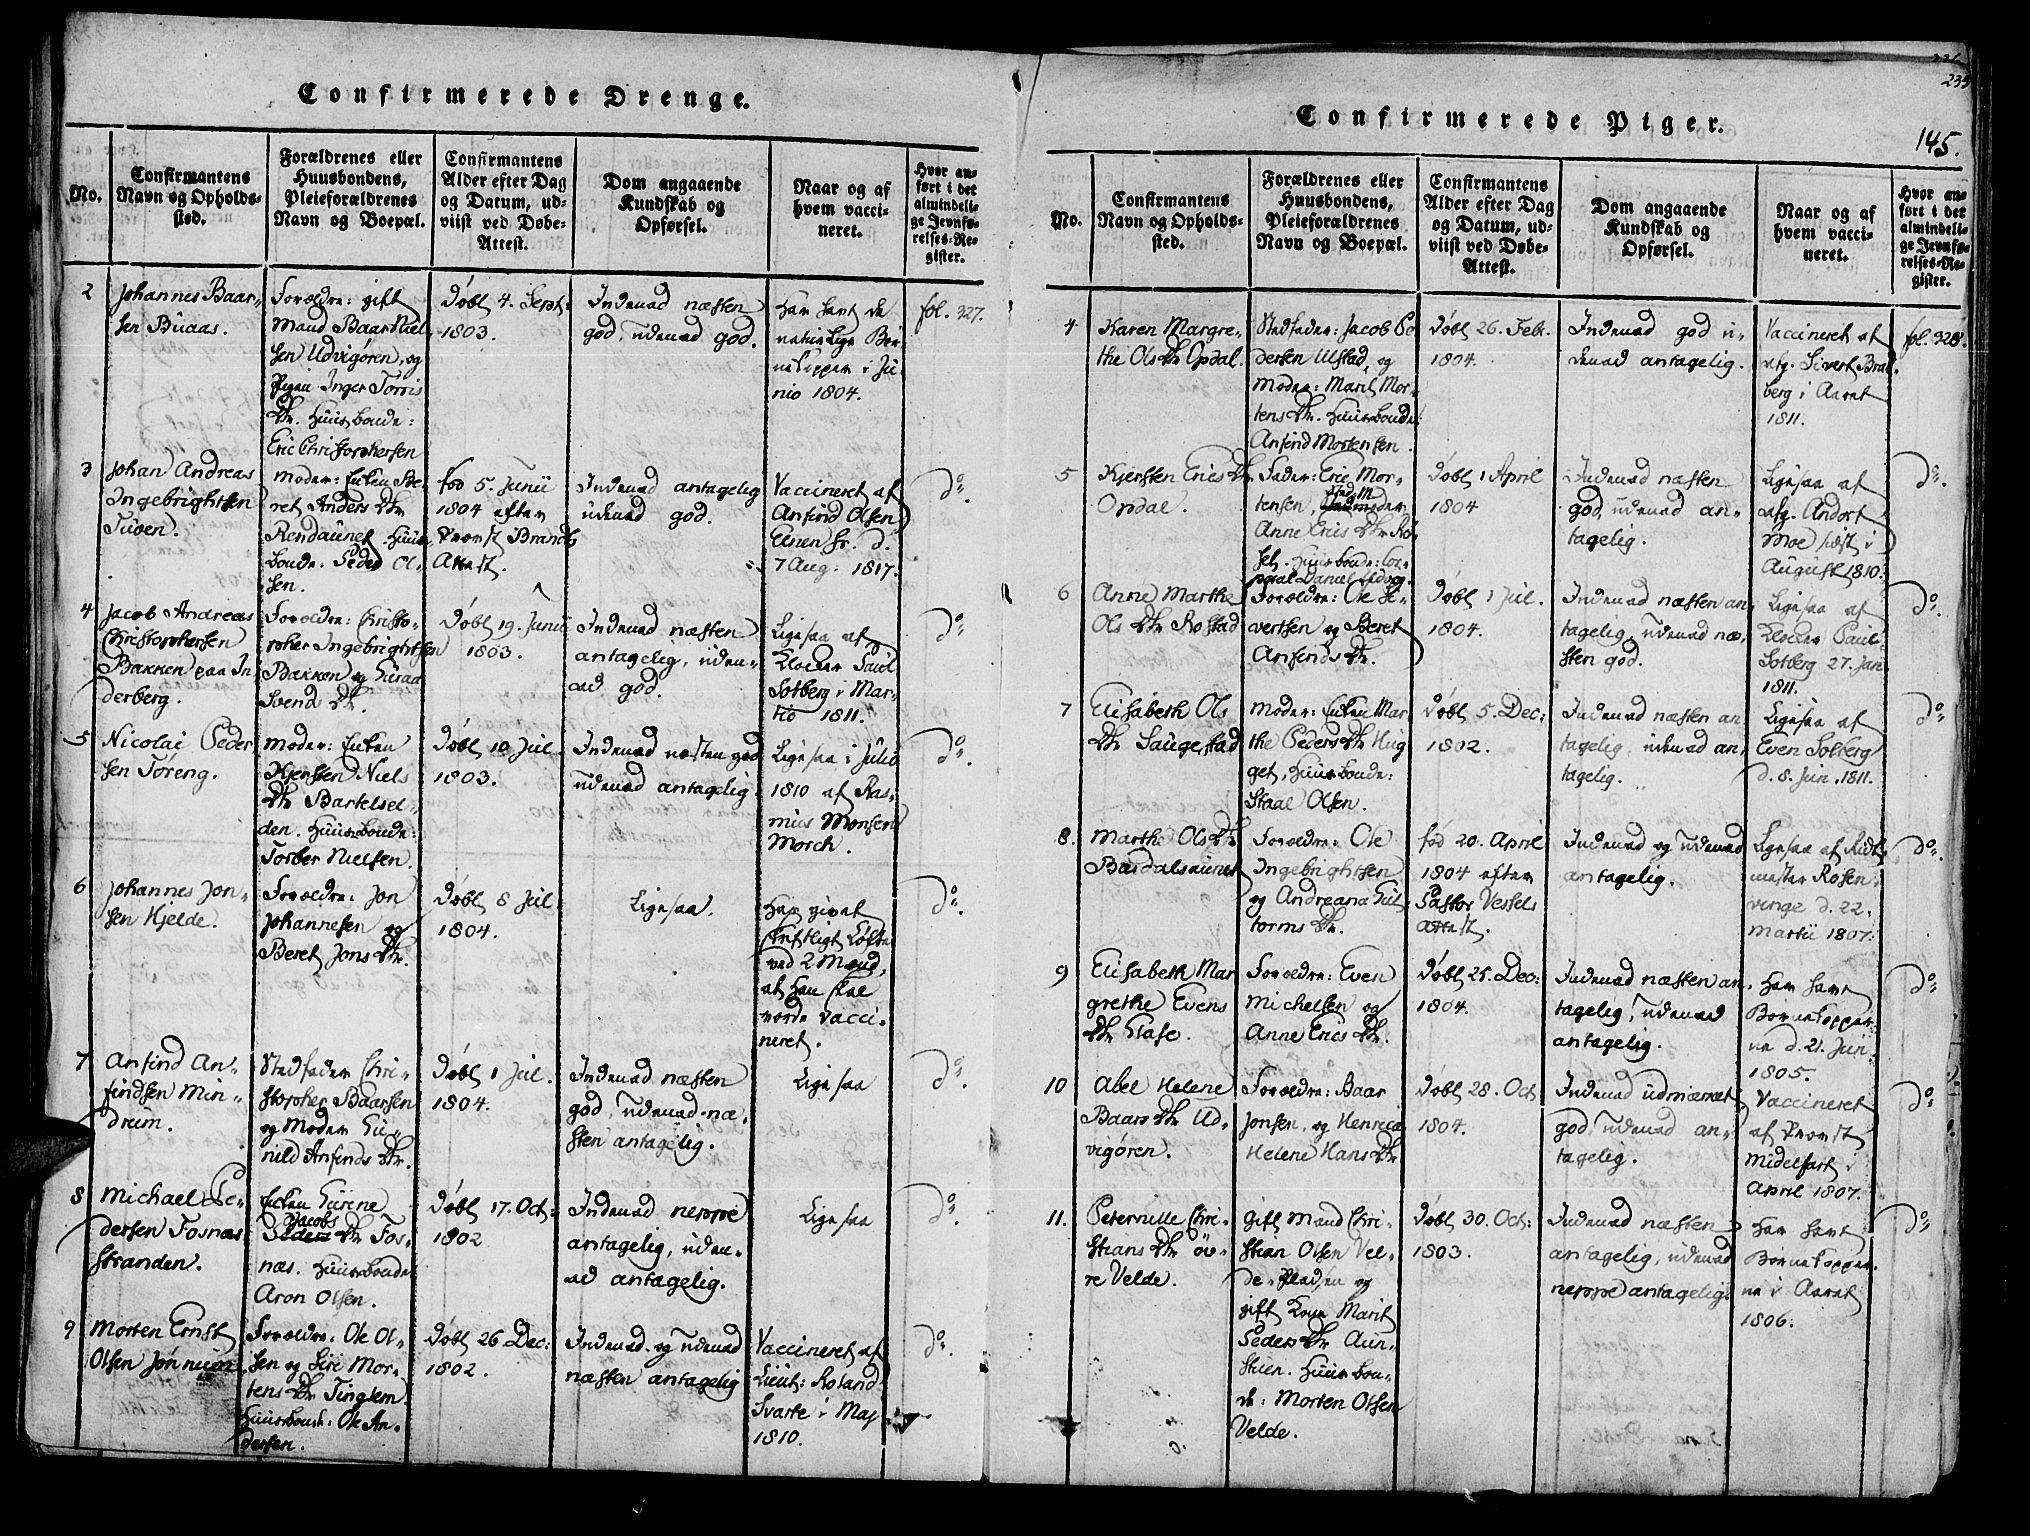 Confirmerede Drenge.
No.
Confirmantens
Navn og Opholds-
sted.
Forældrenes eller
Huusbondens,
Pleieforældrenes
Navn og Boepæl.
Confirmantens
Alder efter Dag
og Datum, ud-
viist ved Døbe-
Attest.
Dom angaaende
Kundskab og
Opførsel.
Naar og af
hvem vacci-
neret.
Hvor an-
ført i det
almindeli-
ge Jevnfø-
relses-Re-
gister.
2
Johannes Baar-
sen Buaas.
Forældre: gift
Mand Baar Niel-
sen Udvigøren, og
Pigen Inger Torris
Dtr. Huusbonde:
Eric Christophersen
Døbt 4. Sept:
1803.
Indenad næsten
god, udenad god.
Har havt de
naturlige Bør-
nekopper i Ju-
nio 1804.
fol. 327.
3
Johan Andreas
Ingebrightsen
Tuven.
Moder: Enken Be-
ret Anders Dtr
Rendaunet. Huus-
bonde: Peder Ol-
sen.
fød 5. Junii
1804 efter
Provst Brandts
Attest.
Indenad antagelig
udenad god.
Vaccineret af
Anfind Olsen
Elnen d.
7 Aug. 1817.
do.
4
Jacob Andreas
Christophersen
Bakken paa In-
derberg.
Forældre: Christo-
pher Ingebrightsen
Bakken og Guru
Svend Dtr.
Døbt 19. Junii
1803.
Indenad næsten
antagelig, uden-
ad god.
Ligesaa af
Klocker Paul
Solberg i Mar-
tio 1811.
do
5
Nicolai Peder
sen Tøreng.
Moder: Enken
Kjersten Niels
Dtr Bartelsel-
den. Huusbonde:
Torber Nielsen.
Døbt 10 Jul.
1803.
Indenad næsten god
udenad antagelig.
Ligesaa i Julio
1810 af Ras-
mus Monsen
Morch.
do.
6
Johannes Jon-
sen Hjelde.
Forældre: Jon
Johannesen og
Beret Jons Dtr.
Døbt 8 Jul.
1804.
Ligesaa.
Har givet
skriftligt Løfte
ved 2 Mænd,
at han skal
vorde vacci-
neret.
do.
7
Anfind An-
findsen Min-
drum.
Stedfader Chri-
stopher Baarsen
og Moder Gu-
nild Anfinds Dtr.
Døbt 1 Jul.
1804.
Indenad næsten
god, udenad næ-
sten antagelig.
Ligesaa
do.
8
Michael Pe-
dersen Fosnæs-
stranden.
Enken Gurine
Jacobs
Peders Dtr Fos-
næs. Huusbonde
Aron Olsen.
Døbt 17. Oct:
1802
Indenad neppe
antagelig, uden-
ad antagelig.
Ligesaa
do.
9
Morten Ernst
Olsen Jørnum
Forældre: Ole Ol-
sen og Siri Mor-
tens Dtr Tinglem
Huusbond: Ole An-
dersen.
Døbt 26 Dec:
1802.
Indenad og udenad
næsten antagelig
Vaccineret af
Lieut: Roland
Svarte i Maj
1810.
do.
235
145.
Confirmerede Piger.
No.
Confirmantens
Navn og Opholds-
sted.
Forældrenes eller
Huusbondens,
Pleieforældrenes
Navn og Boepæl.
Confirmantens
Alder efter Dag
og Datum, ud-
viist ved Døbe-
Attest.
Dom angaaende
Kundskab og
Opførsel.
Naar og af
hvem vacci-
neret.
Hvor an-
ført i det
almindeli-
ge Jevnfø-
relses-Re-
gister.
4
Karen Margre-
the Ols Dtr Opdal.
Stedfader: Jacob Pe
dersen Ulstad, og
Moder: Marit Mor-
tens Dtr. Huusbonde:
Anfind Mortensen.
Døbt 26. Febr.
1804.
Indenad god u-
denad antagelig.
Vaccineret af
afg. Sivert Brat
berg i Aaret
1811.
fol. 328.
5
Kjersten Erics Dtr
Opdal.
Fader: Eric Mor-
tensen, Stedmoder
Anne Erics Dtr Rø-
sel. Huusbonde: Cor-
poral Daniel Udvog.
Døbt 1 April
1804
Indenad næsten
god, udenad an-
tagelig.
Ligesaa af
afg. Andort
Moe sæst i
August 1810.
do.
6
Anne Martha
Ols Dtr Rostad
Forældre: Ole Si-
vertsen og Beret
Anfinds Dtr.
Døbt 1 Jul.
1804.
Indenad næsten an-
tagelig, udenad næ-
sten god.
Ligesaa af
Klocker Paul
Solberg 27. Jan
1811.
do.
7
Elisabeth Ols
Dtr Saugestad
Moder: Enken Mar-
the Peders Dtr Hug
get. Huusbonde:
Staal Olsen.
Døbt 5. Dec:
1802.
Indenad næsten an
tagelig, udenad an-
tagelig.
Ligesaa af
Even Solberg
d. 8. Jun. 1811.
do
8.
Martha Ols Dtr
Bardalsaunet
Forældre: Ole
Ingebrightsen
og Andreana Gut-
torms Dtr.
fød 20. April
1804 efter
Pastor Vessels
Attest.
Indenad og udenad
antagelig.
Ligesaa af Ridt-
mester Rosen-
vinge d. 22.
Martii 1807.
do.
9
Elisabeth Mar
grethe Evens
Dtr Stafe.
Forældre: Even
Michelsen og
Anne Erics Dtr.
Døbt 25. Dec:
1804.
Indenad næsten an-
tagelig, udenad
antagelig.
Har havt
Børnekopper-
ne d. 21. Jun.
1805.
do
10
Abel Helene
Baars Dtr Ud-
vigøren.
Forældre: Baar
Jonsen, og Henricæ
Helene Hans Dtr
Døbt 28. Oct
1804.
Indenad udmærket
god, udenad an-
tagelig.
Vaccineret
af Provst
Midelfart i
April 1807.
do
11.
Peternille Chri-
stians Dtr øv-
re Velde.
Gift Mand Chri-
stian Olsen Vel-
de-Pladsen og
gift Kone Marit
Peders Dtr Aun-
stien. Huusbon-
de: Morten Olsen
Velde.
Døbt 30. Oct:
1803.
Indenad næsten
antagelig, udenad
neppe antagelig.
Har havt
Børnekopper-
ne i Aaret
1806.
do